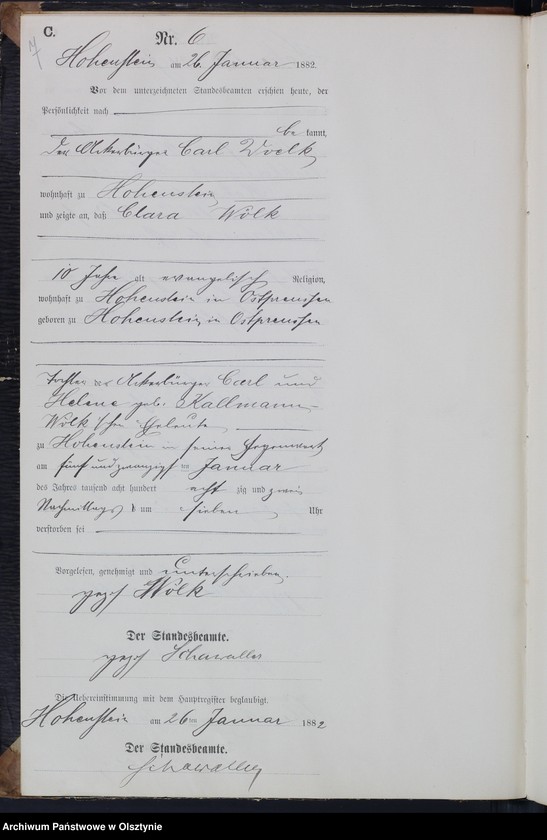 C.
7
Nr. 6
Hohenstein am 26. Januar 1882.
Vor dem unterzeichneten Standesbeamten erschien heute, der
Persönlichkeit nach
be kannt,
der Ackerbürger Carl Woelk
wohnhaft zu Hohenstein
und zeigte an, daß Clara Wölk
10 Jahre alt evangelischer Religion,
wohnhaft zu Hohenstein in Ostpreussen
geboren zu Hohenstein, in Ostpreussen
Tochter der Ackerbürger Carl und
Helene geb. Kallmann
Wölk'schen Eheleute
zu Hohenstein in seiner Gegenwart
am fünf und zwanzigsten Januar
des Jahres tausend acht hundert achtzig und zwei
Nachmittags um sieben Uhr
verstorben sei
Vorgelesen, genehmigt und unterschrieben.
gez. Wölk
Der Standesbeamte.
gez. Schawaller
Die Uebereinstimmung mit dem Hauptregister beglaubigt.
Hohenstein am 26ten Januar 1882
Der Standesbeamte.
Schawaller
Archiwum Państwowe w Olsztynie